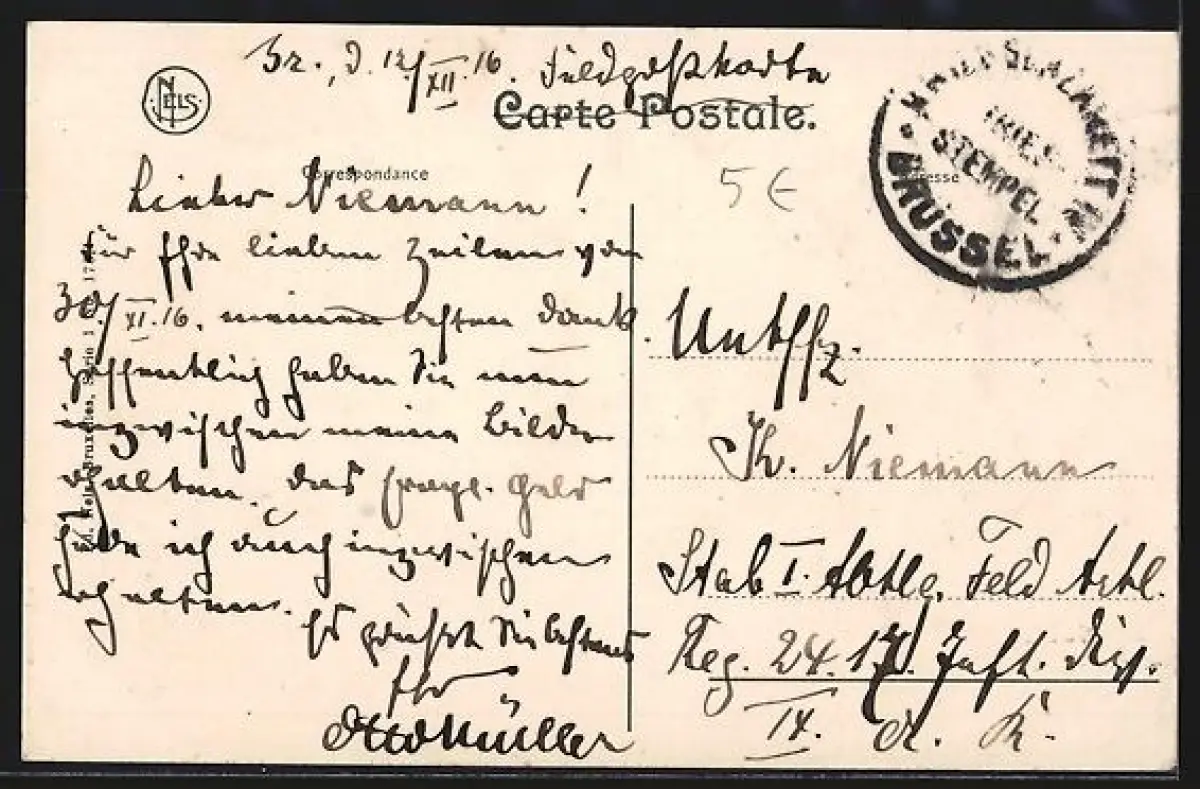 Br., d. 12/XII.16. Feldpostkarte
NELS
Carte Postale.
Correspondance
Lieber Niemann!
für Ihre lieben Zeilen von
30/XI.16. meinen besten Dank.
Hoffentlich haben Sie nun
inzwischen meine Bilder
erhalten. Das Geld
habe ich auch inzwischen
erhalten.
Es grüsst Sie bestens
Ihr
Otto Müller
5€
STEMPEL
BRÜSSEL
Untffz.
K. Niemann
Stab I. Abtlg. Feld Artl.
Reg. 24. 17. Inft. Div.
IX. A. K.